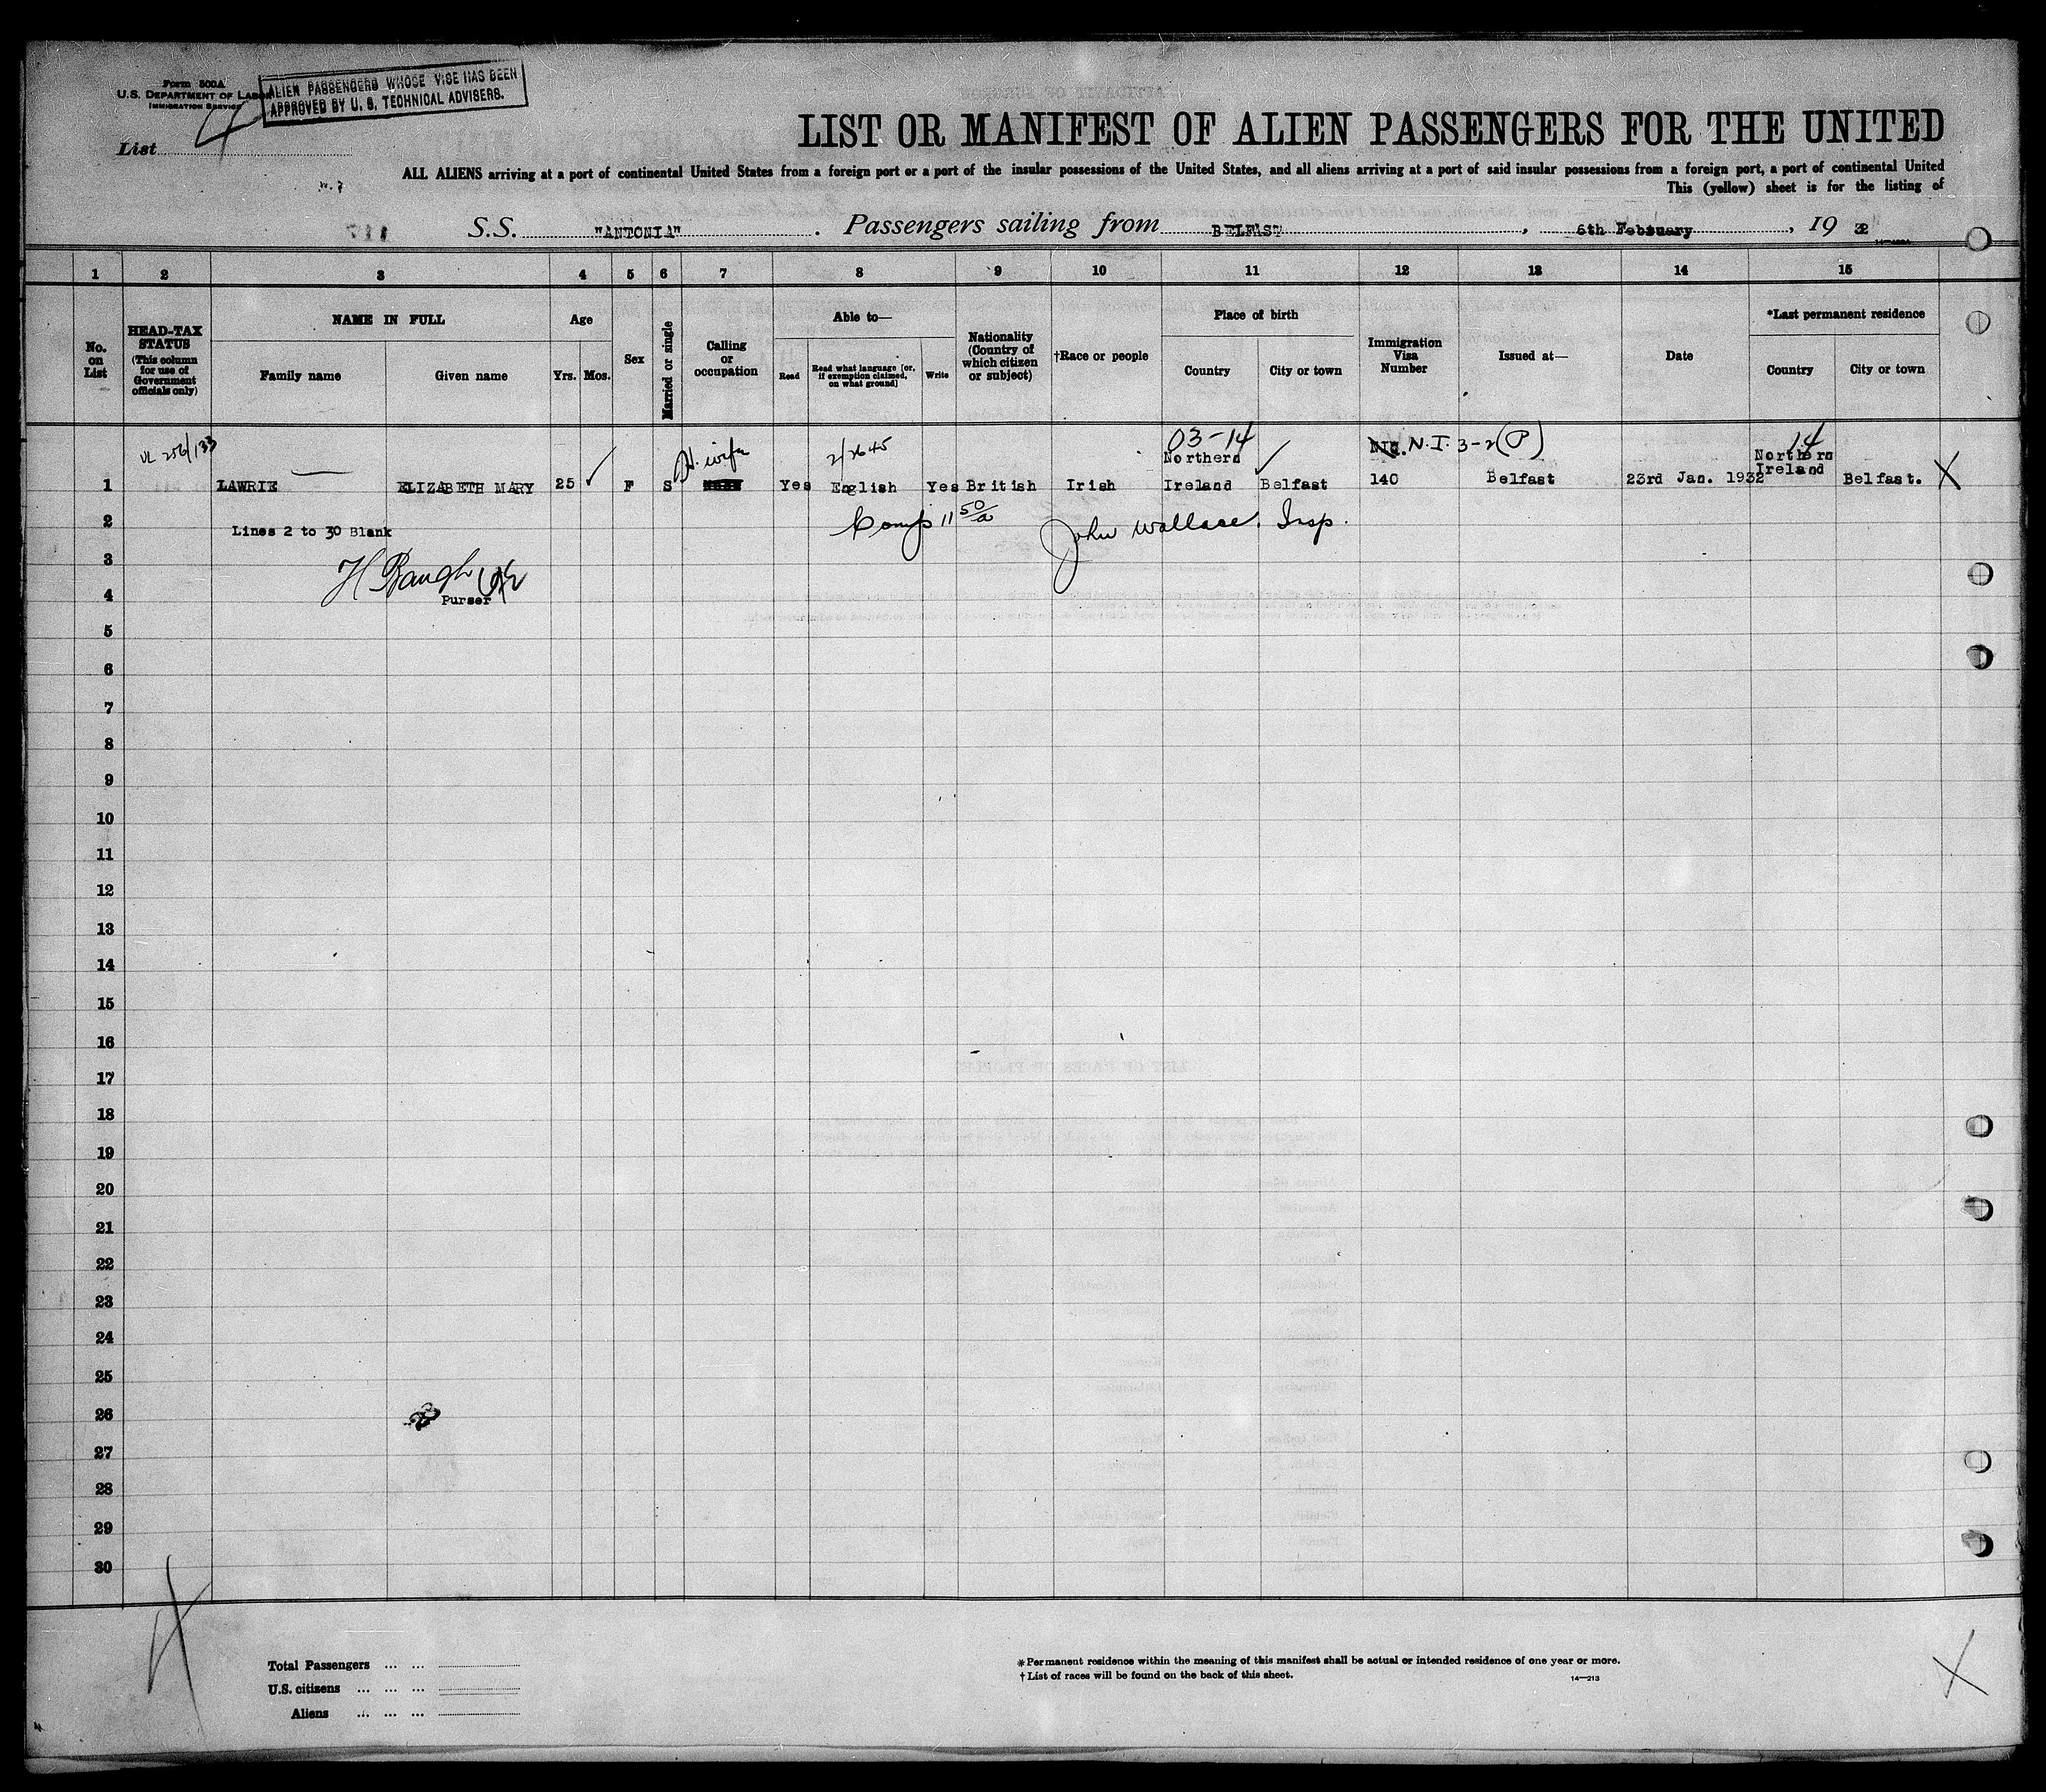 Form 500A
U.S. DEPARTMENT OF LABOR
IMMIGRATION SERVICE
ALIEN PASSENGERS WHOSE VISE HAS BEEN
APPROVED BY U. S. TECHNICAL ADVISERS.
List 4
LIST OR MANIFEST OF ALIEN PASSENGERS FOR THE UNITED
ALL ALIENS arriving at a port of continental United States from a foreign port or a port of the insular possessions of the United States, and all aliens arriving at a port of said insular possessions from a foreign port, a port of continental United
This (yellow) sheet is for the listing of
S.S. "ANTONIA". Passengers sailing from BELFAST, 6th February, 19 32
1 2 3 4 5 6 7 8 9 10 11 12 13 14 15
No. on List
HEAD-TAX STATUS (This column for use of Government officials only)
NAME IN FULL
Family name Given name
Age
Yrs. Mos.
Sex
Married or single
Calling or occupation
Able to—
Read Read what language [or, if exemption claimed, on what ground] Write
Nationality (Country of which citizen or subject)
†Race or people
Place of birth
Country City or town
Immigration Visa Number
Issued at—
Date
*Last permanent residence
Country City or town
H. wife 2/2645 03-14 N.I. 3-2(P) 14
1 LAWRIE ELIZABETH MARY 25 F S Yes English Yes British Irish Northern Ireland Belfast 140 Belfast 23rd Jan. 1932 Northern Ireland Belfast. X
2 Lines 2 to 30 Blank
Comp 11 50/a John Wallace. Insp.
3 H Baugh
4 Purser
5
6
7
8
9
10
11
12
13
14
15
16
17
18
19
20
21
22
23
24
25
26
27
28
29
30
Total Passengers ... ...
U.S. citizens ... ... ...
Aliens ... ... ...
*Permanent residence within the meaning of this manifest shall be actual or intended residence of one year or more.
†List of races will be found on the back of this sheet.
14—213